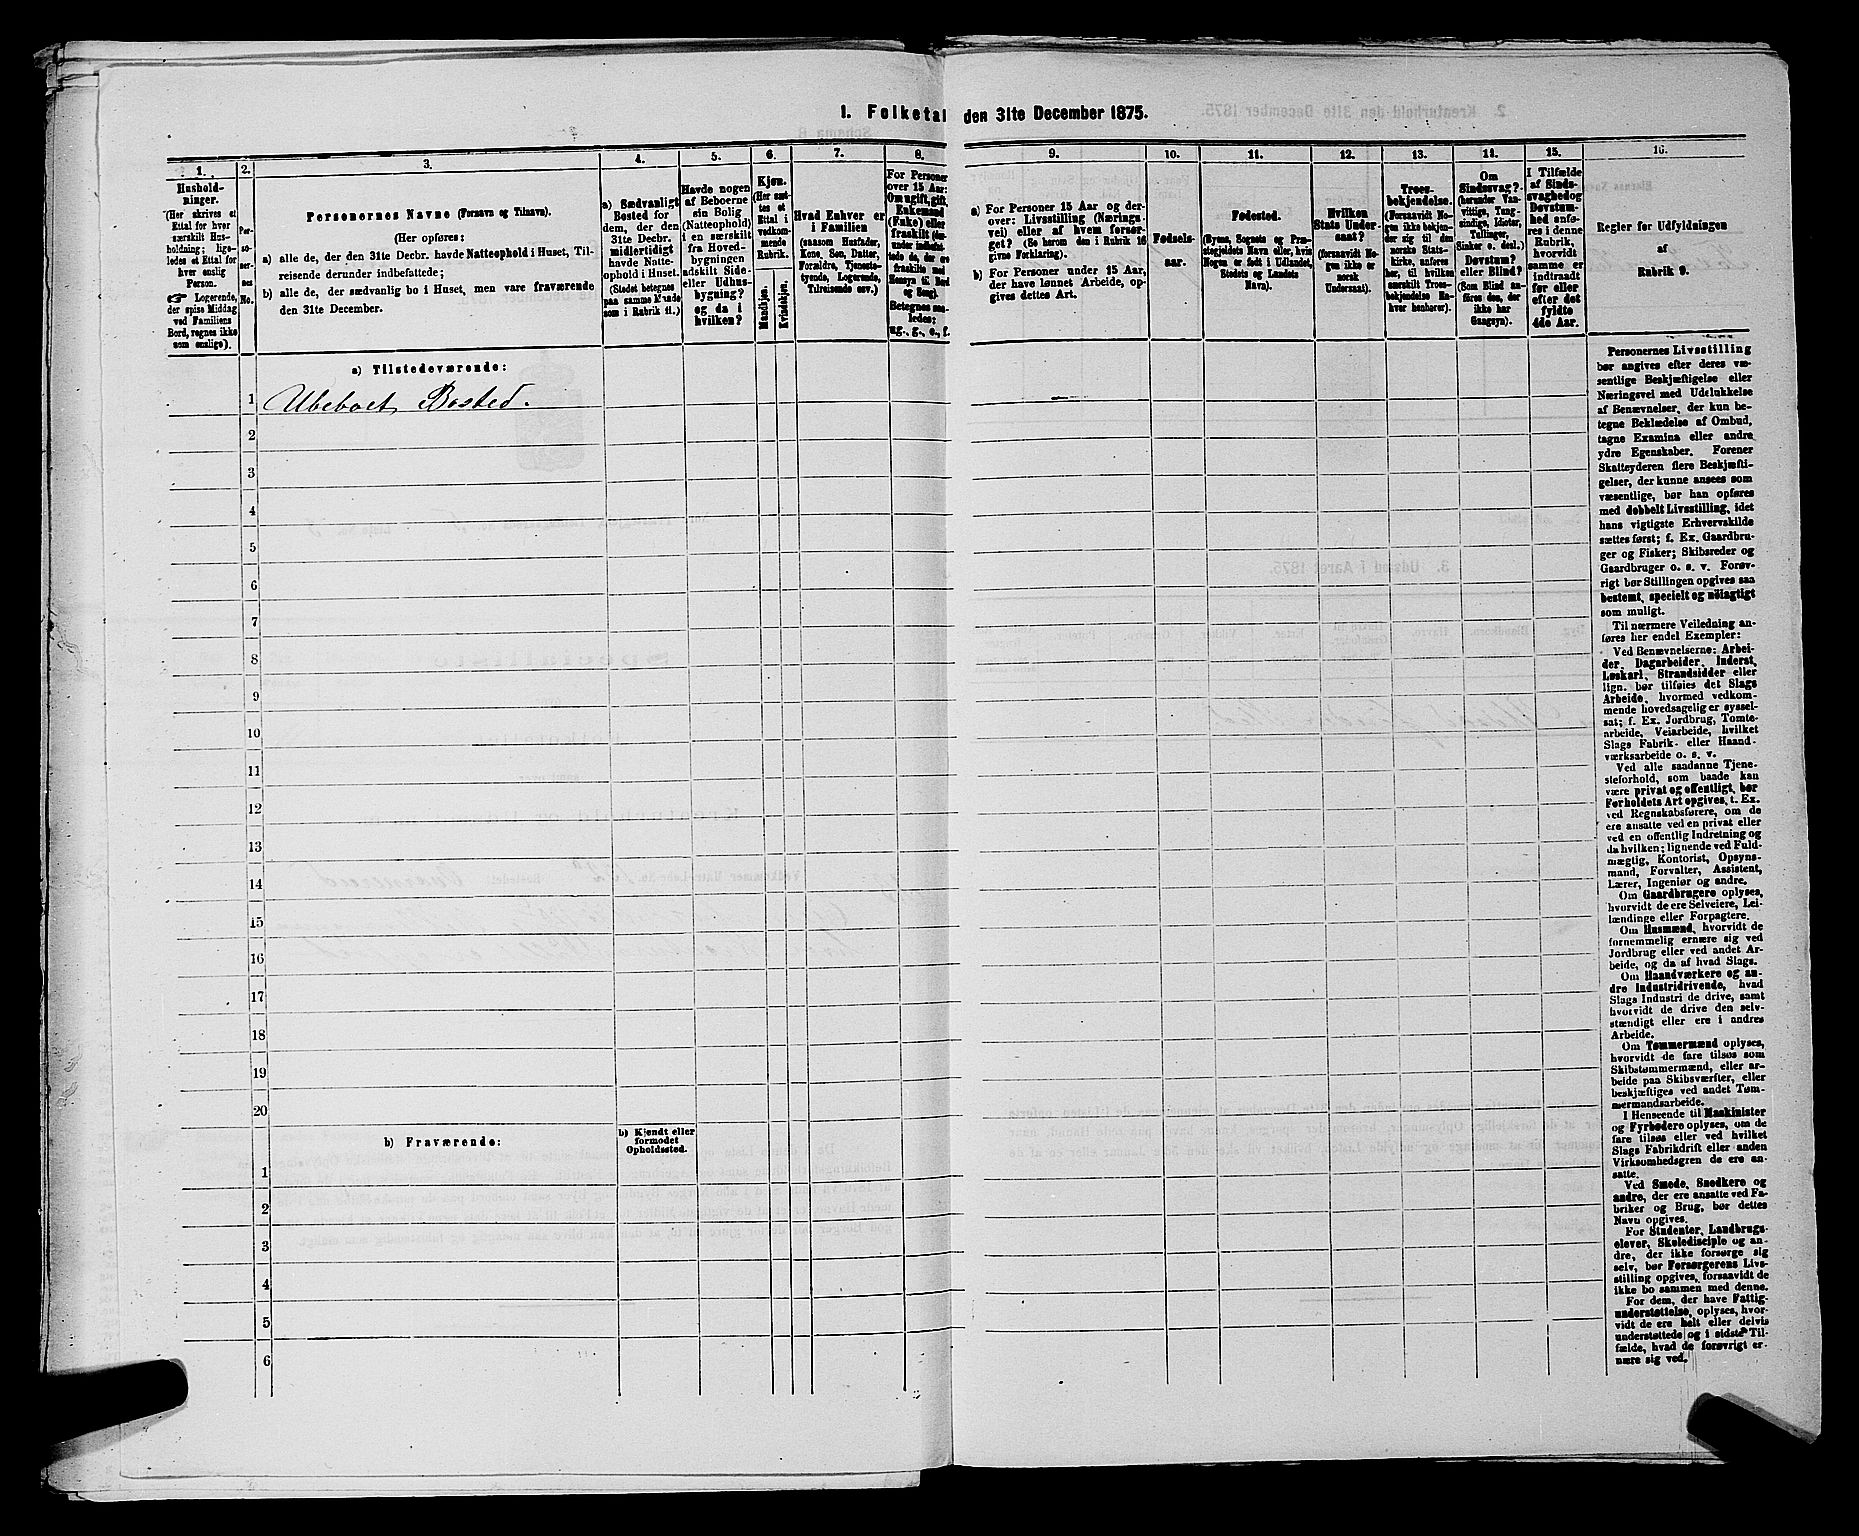 1. Folketal den 31te December 1875.
1.
2.
3.
4.
5.
6.
7.
8.
9.
10.
11.
12.
13.
14.
15.
16.
Hushold-
ninger.
(Her skrives et
Ettal for hver
særskilt Hus-
holdning; lige-
ledes et Ettal for
hver enslig
Person.
☞ Logerende,
der spise Middag
ved Familiens
Bord, regnes ikke
som enslige).
Per-
so-
ner-
nes
No.
Personernes Navne (Fornavn og Tilnavn).
(Her opføres:
a) alle de, der den 31te Decbr. havde Natteophold i Huset, Til-
reisende derunder indbefattede;
b) alle de, der sædvanlig bo i Huset, men vare fraværende
den 31te December.
a) Sædvanligt
Bosted for
dem, der den
31te Decbr.
midlertidigt
havde Natte-
ophold i Huset.
(Stedet betegnes
paa samme Maade
som i Rubrik 11.)
Havde nogen
af Beboerne
sin Bolig
(Natteophold)
i en særskilt
fra Hoved-
bygningen
adskilt Side-
eller Udhus-
bygning?
og da i
hvilken?
Kjøn.
(Her sæt-
tes et
Ettal i
vedkom-
mende
Rubrik.
Mandkjøn.
Kvindekjøn.
Hvad Enhver er
i Familien
(saasom Husfader,
Kone, Søn, Datter,
Forældre, Tjeneste-
tyende, Logerende,
Tilreisende osv.)
For Personer
over 15 Aar:
Om ugift, gift,
Enkemand
(Enke) eller
fraskilt
Betegnes saa-
ledes:
ug., g., e., f.
a) For Personer 15 Aar og der-
over: Livsstilling (Nærings-
vei) eller af hvem forsør-
get? (Se herom den i Rubrik 16
givne Forklaring).
b) For Personer under 15 Aar,
der have lønnet Arbeide, op-
gives dettes Art.
Fødsels-
aar.
Fødested.
(Byens, Sognets og Præ-
stegjeldets Navn eller, hvis
Nogen er født i Udlandet,
Stedets og Landets
Navn).
Hvilken
Stats Under-
saat?
(forsaavidt No-
gen ikke er
norsk
Undersaat).
Troes-
bekjendelse.
(Forsaavidt No-
gen ikke bekjen-
der sig til den
norske Stats-
kirke, anføres
her, til hvilken
særskilt Troes-
bekjendelse En-
hver henhører).
Om
Sindssvag?
(herunder Van-
vittige, Tung-
sindige, Idioter,
Tullinger,
Sinker o. desl.)
Døvstum?
eller Blind?
(Som Blind an-
føres den, der
har
Gangsyn).
I Tilfælde
af Sinds-
svaghed og
Døvstum-
hed anfø-
res i denne
Rubrik,
hvorvidt
samme er
indtraadt
før eller
efter det
fyldte
4de Aar.
Regler for Udfyldningen
af
Rubrik 9.
a) Tilstedeværende:
1 Ubeboet Bosted.
2
3
4
5
6
7
8
9
10
11
12
13
14
15
16
17
18
19
20
b) Fraværende:
b) Kjendt eller
formodet
Opholdssted.
1
2
3
4
5
6
Personernes Livsstilling
bør angives efter deres væ-
sentlige Beskjæftigelse eller
Næringsvei med Udelukkelse
af Benævnelser, der kun be-
tegne Beklædelse af Ombud,
tagne Examina eller andre
ydre Egenskaber. Forener
Skatteyderen flere Beskjæfti-
gelser, der kunne ansees som
væsentlige, bør han opføres
med dobbelt Livsstilling, idet
hans vigtigste Erhvervskilde
sættes først; f. Ex. Gaardbru-
ger og Fisker; Skibsreder og
Gaardbruger o. s. v. Forøv-
rigt bør Stillingen opgives saa
bestemt, specielt og nøiagtigt
som muligt.
Til nærmere Veiledning an-
føres her endel Exempler:
Ved Benævnelserne: Arbei-
der, Dagarbeider, Inderst,
Løskarl, Strandsidder eller
lign. bør tilføies det Slags
Arbeide, hvormed vedkom-
mende hovedsagelig er syssel-
sat; f. Ex. Jordbrug, Tomte-
arbeide, Veiarbeide, hvilket
Slags Fabrik- eller Haand-
værksarbeide o. s. v.
Ved alle saadanne Tjene-
steforhold, som baade kan
være privat og offentligt, bør
Forholdets Art opgives, t. Ex.
ved Regnskabsførere, om de
ere ansatte ved en privat eller
ved en offentlig Indretning og
da hvilken; lignende ved Fuld-
mægtig, Kontorist, Opsyns-
mand, Forvalter, Assistent,
Lærer, Ingeniør og andre.
Om Gaardbrugere oplyses,
hvorvidt de ere Selveiere, Lei-
lændinge eller Forpagtere.
Om Husmænd, hvorvidt de
fornemmelig ernære sig ved
Jordbrug eller ved andet Ar-
beide, og da af hvad Slags.
Om Haandværkere og an-
dre Industridrivende, hvad
Slags Industri de drive, samt
hvorvidt de drive den selv-
stændigt eller ere i andres
Arbeide.
Om Tømmermænd oplyses,
hvorvidt de fare tilsøs som
Skibstømmermænd, eller ar-
beide paa Skibsværfter, eller
beskjæftiges ved andet Tøm-
mermandsarbeide.
I Henseende til Maskinister
og Fyrbødere oplyses, om de
fare tilsøs eller ved hvilket
Slags Fabrikdrift eller anden
Virksomhedsgren de ere an-
satte.
Ved Smede, Snedkere og
andre, der ere ansatte ved Fa-
briker og Brug, bør dettes
Navn opgives.
For Studenter, Landbrugs-
elever, Skoledisciple og an-
dre, der ikke forsørge sig
selv, bør Forsørgerens Livs-
stilling opgives, forsaavidt de
ikke bo sammen med denne.
For dem, der have Fattig-
understøttelse, oplyses, hvor-
vidt de ere helt eller delvis
understøttede og i sidste Til-
fælde, hvad de forøvrigt er-
nære sig ved.